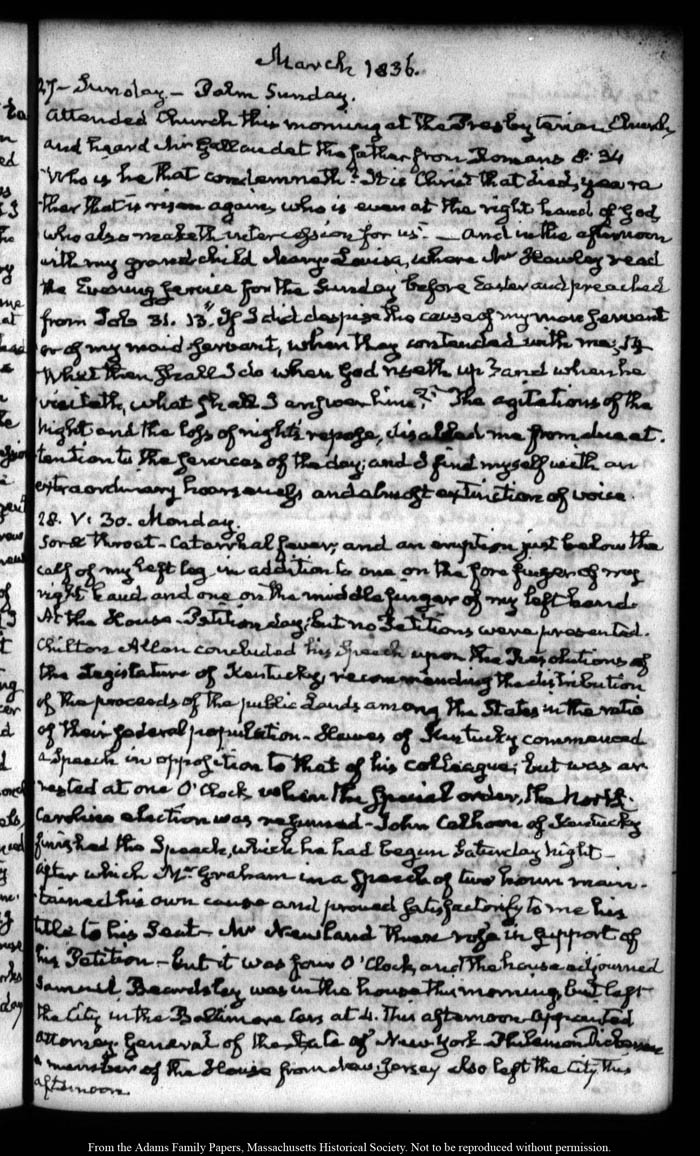 March 1836.
27 – Sunday – Palm Sunday.
Attended Church this morning at the Presbyterian Church,
and heard Mr Gallaudet the father from Romans 8. 34
"Who is he that condemneth? It is Christ that died, yea ra
ther that is risen again, who is even at the right hand of God,
who also maketh intercession for us". – And in the afternoon
with my grandchild Mary Louisa, where Mr Hawley read
the Evening Service for the Sunday before Easter and preached
from Job 31. 13. "If I did despise the cause of my man servant
or of my maid servant, when they contended with me; 14
What then shall I do when God riseth up? and when he
visiteth, what shall I answer him?" The agitations of the
night and the loss of night's repose, disabled me from due at-
tention to the services of the day; and I find myself with an
extraordinary hoarseness and almost extinction of voice.
28. V: 30. Monday.
Sore throat – Catarrhal fever; and an eruption just below the
calf of my left leg in addition to one on the fore finger of my
right hand and one on the middle finger of my left hand.
At the House – Petition day; but no Petitions were presented.
Chilton Allan concluded his Speech upon the Resolutions of
the Legislature of Kentucky, recommending the distribution
of the proceeds of the public Lands among the States in the ratio
of their federal population – Hawes of Kentucky commenced
a Speech in opposition to that of his colleague; but was ar
rested at one O'Clock when the special order, the North-
Carolina election was resumed – John Calhoon of Kentucky
finished the Speech, which he had begun Saturday Night –
After which Mr Graham in a Speech of two hours main-
tained his own cause and proved satisfactorily to me his
title to his Seat – Mr Newland then rose in support of
his Petition – but it was four O'Clock, and the house adjourned
Samuel Beardsley was in the house this morning, but left
the City in the Baltimore Cars at 4. this afternoon appointed
Attorney General of the State of New York Philemon Dickerson
a member of the House from New-Jersey also left the City this
afternoon
From the Adams Family Papers, Massachusetts Historical Society. Not to be reproduced without permission.